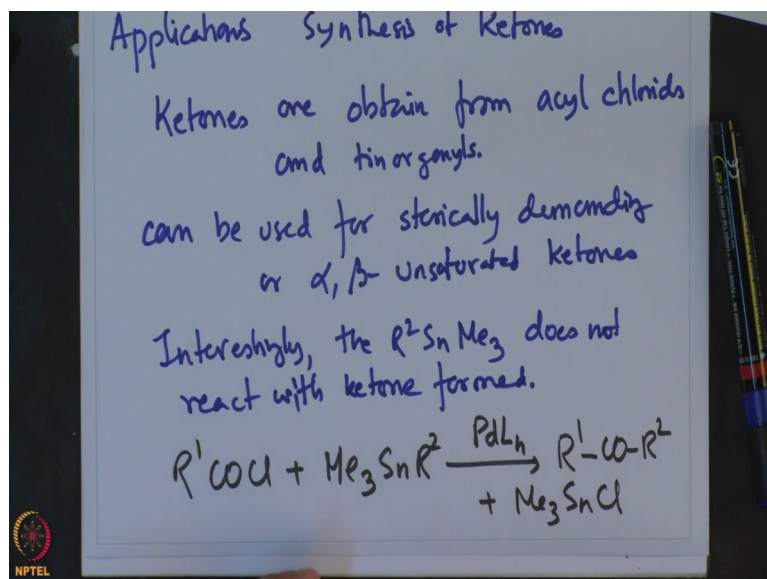 Applications Synthesis of Ketones
Ketones are obtain from acyl chlorids
and tinorganyls.
can be used for sterically demanding
or α, β- unsaturated ketones
Interestingly, the R²SnMe₃ does not
react with ketone formed.
R¹COCl + Me₃SnR² PdLn → R¹-CO-R²
+ Me₃SnCl
NPTEL